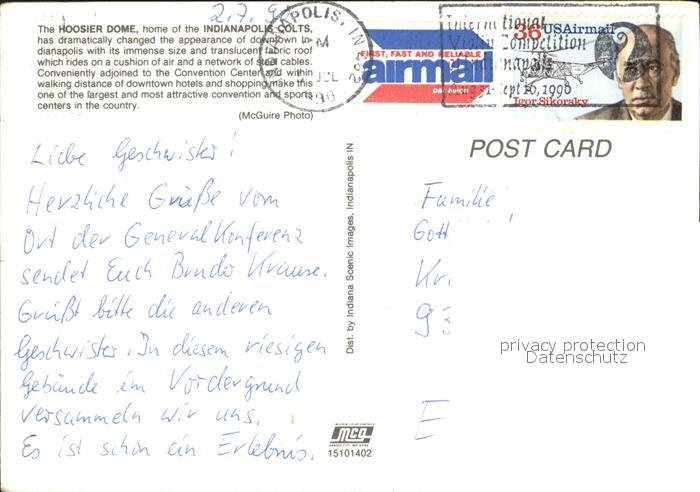 2.7.90
The HOOSIER DOME, home of the INDIANAPOLIS COLTS,
has dramatically changed the appearance of downtown In-
dianapolis with its immense size and translucent fabric roof
which rides on a cushion of air and a network of steel cables.
Conveniently adjoined to the Convention Center and within
walking distance of downtown hotels and shopping make this
one of the largest and most attractive convention and sports
centers in the country.
(McGuire Photo)
INDIANAPOLIS, IN
PM
JUL
1990
FIRST, FAST AND RELIABLE
airmail
par avion
International
Violin Competition
Indianapolis
Sept 16, 1990
36 USAirmail
Igor Sikorsky
POST CARD
Liebe Geschwister!
Herzliche Grüße vom
Ort der Generalkonferenz
sendet Euch Bruder Krause.
Grüßt bitte die anderen
Geschwister. In diesem riesigen
Gebäude im Vordergrund
versammeln wir uns.
Es ist schon ein Erlebnis.
Dist. by Indiana Scenic Images, Indianapolis IN
MCG
15101402
Familie
Gott
Kr
93
E
privacy protection
Datenschutz